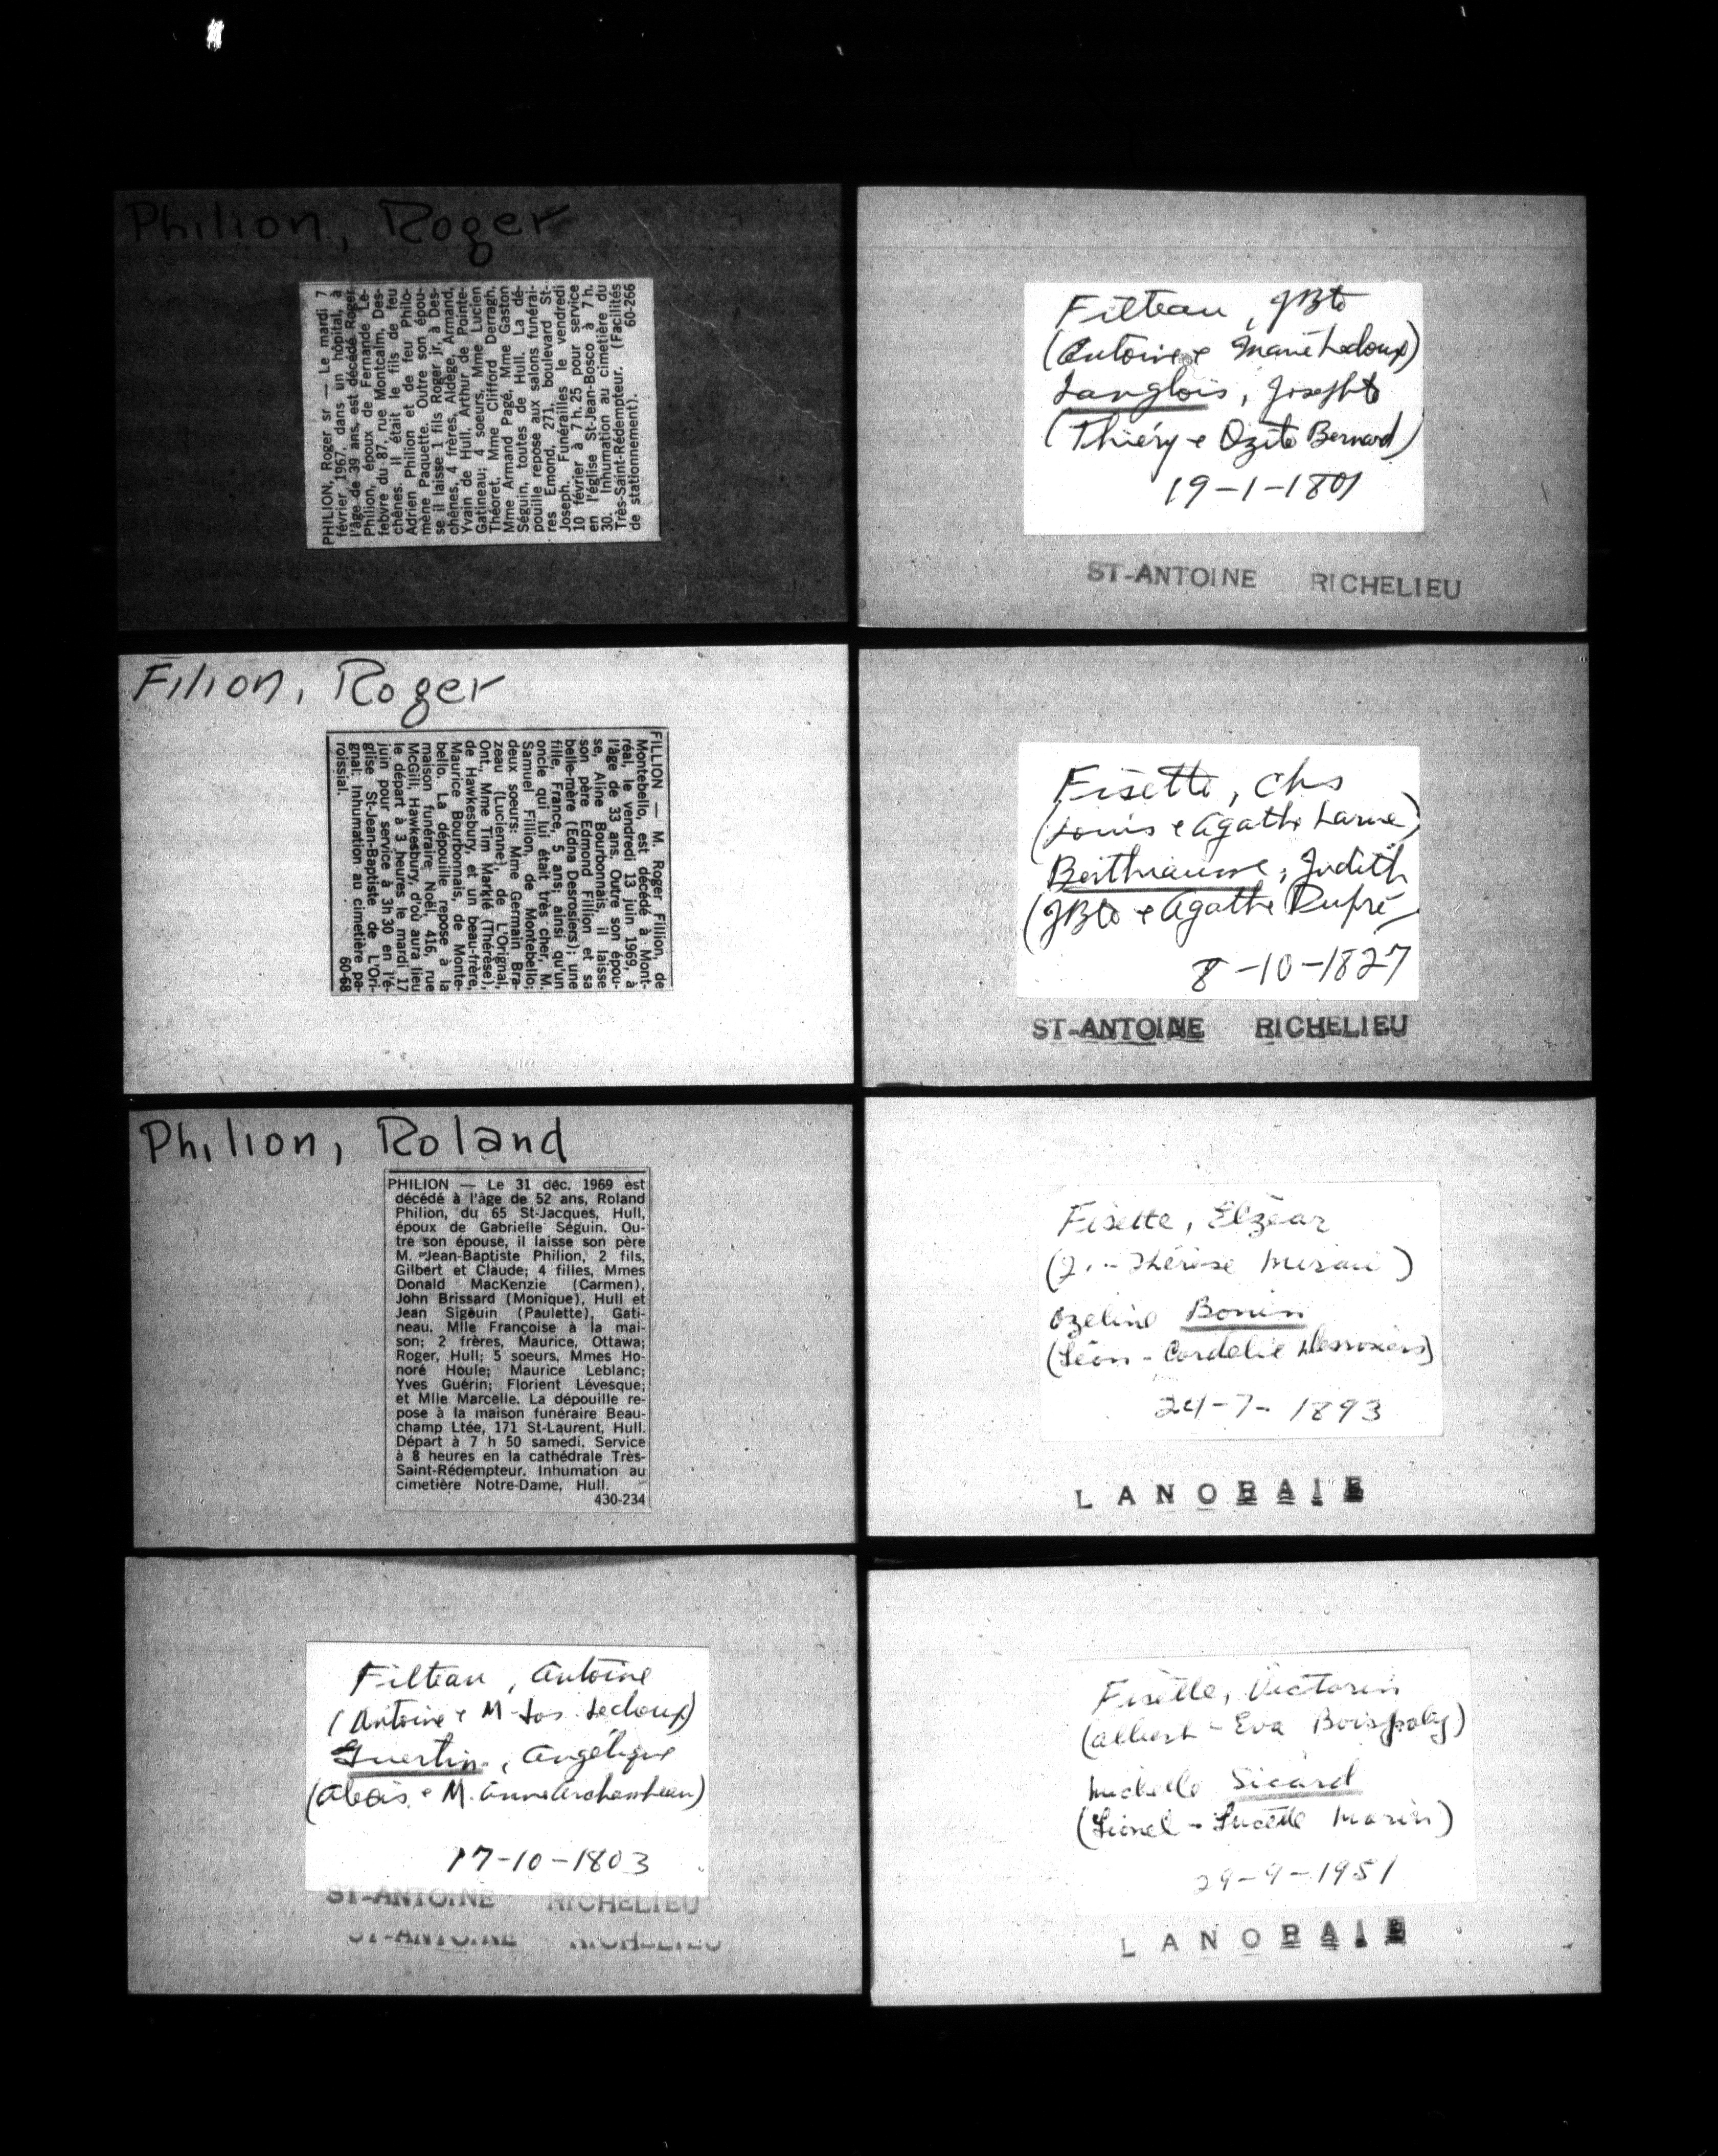 Philion, Roger
PHILION, Roger sr — Le mardi 7
février 1967, dans un hôpital, à
l'âge de 39 ans, est décédé Roger
Philion, époux de Fernande Le-
febvre du 87, rue Montcalm, Des-
chênes. Il était le fils de feu
Adrien Philion et de feu Philo-
mène Paquette. Outre son épou-
se il laisse 1 fils Roger jr, à Des-
chênes, 4 frères, Aldège, Armand,
Yvain de Hull, Arthur de Pointe-
Gatineau; 4 soeurs, Mme Lucien
Théoret, Mme Clifford Derragh,
Mme Armand Pagé, Mme Gaston
Séguin, toutes de Hull. La dé-
pouille repose aux salons funérai-
res Emond, 271, boulevard St-
Joseph. Funérailles le vendredi
10 février à 7 h. 25 pour service
en l'église St-Jean-Bosco à 7 h.
30. Inhumation au cimetière du
Très-Saint-Rédempteur. (Facilités
de stationnement). 60-266
Filion, Roger
FILLION — M. Roger Fillion, de
Montebello, est décédé à Mont-
réal, le vendredi 13 juin 1969, à
l'âge de 33 ans. Outre son épou-
se, Aline Bourbonnais, il laisse
son père Edmond Fillion et sa
belle-mère (Edna Desrosiers); une
fille, France, 5 ans; ainsi qu'un
oncle qui lui était très cher, M.
Samuel Fillion, de Montebello;
deux soeurs: Mme Germain Bra-
zeau (Lucienne), de L'Orignal,
Ont., Mme Tim Marklé (Thérèse),
de Hawkesbury, et un beau-frère,
Maurice Bourbonnais, de Monte-
bello. La dépouille repose à la
maison funéraire Noël, 416, rue
McGill, Hawkesbury, d'où aura lieu
le départ à 3 heures le mardi 17
juin pour service à 3h30 en l'é-
glise St-Jean-Baptiste de L'Ori-
gnal. Inhumation au cimetière pa-
roissial. 60-68
Philion, Roland
PHILION — Le 31 déc. 1969 est
décédé à l'âge de 52 ans, Roland
Philion, du 65 St-Jacques, Hull,
époux de Gabrielle Séguin. Ou-
tre son épouse, il laisse son père
M. Jean-Baptiste Philion, 2 fils,
Gilbert et Claude; 4 filles, Mmes
Donald MacKenzie (Carmen),
John Brissard (Monique), Hull et
Jean Sigouin (Paulette), Gati-
neau, Mlle Françoise à la mai-
son; 2 frères, Maurice, Ottawa;
Roger, Hull; 5 soeurs, Mmes Ho-
noré Houle; Maurice Leblanc;
Yves Guérin; Florient Lévesque;
et Mlle Marcelle. La dépouille re-
pose à la maison funéraire Beau-
champ Ltée, 171 St-Laurent, Hull.
Départ à 7 h 50 samedi. Service
à 8 heures en la cathédrale Très-
Saint-Rédempteur. Inhumation au
cimetière Notre-Dame, Hull.
430-234
Filteau, Antoine
(Antoine e M-Jos. Ledoux)
Guertin, Angélique
(Alexis e M. Anne Archambeau)
17-10-1803
ST-ANTOINE RICHELIEU
ST-ANTOINE RICHELIEU
Filteau, JBte
(Antoine e Marie Ledoux)
Langlois, Josephte
(Thiéry e Ozite Bernard)
19-1-1801
ST-ANTOINE RICHELIEU
Fisette, Chs
(Louis e Agathe Larue)
Berthiaume, Judith
(JBte e Agathe Dupré
8-10-1827
ST-ANTOINE RICHELIEU
Fisette, Elzéar
(J. - Thérèse)
Ozeline Bonin
(Léon - Cordelie Desrosiers)
24-7-1893
LANORAIE
Fisette, Victorin
(Albert - Eva Boisjoly)
Michelle Sicard
(Lionel - Lucette Marin)
29-9-1951
LANORAIE